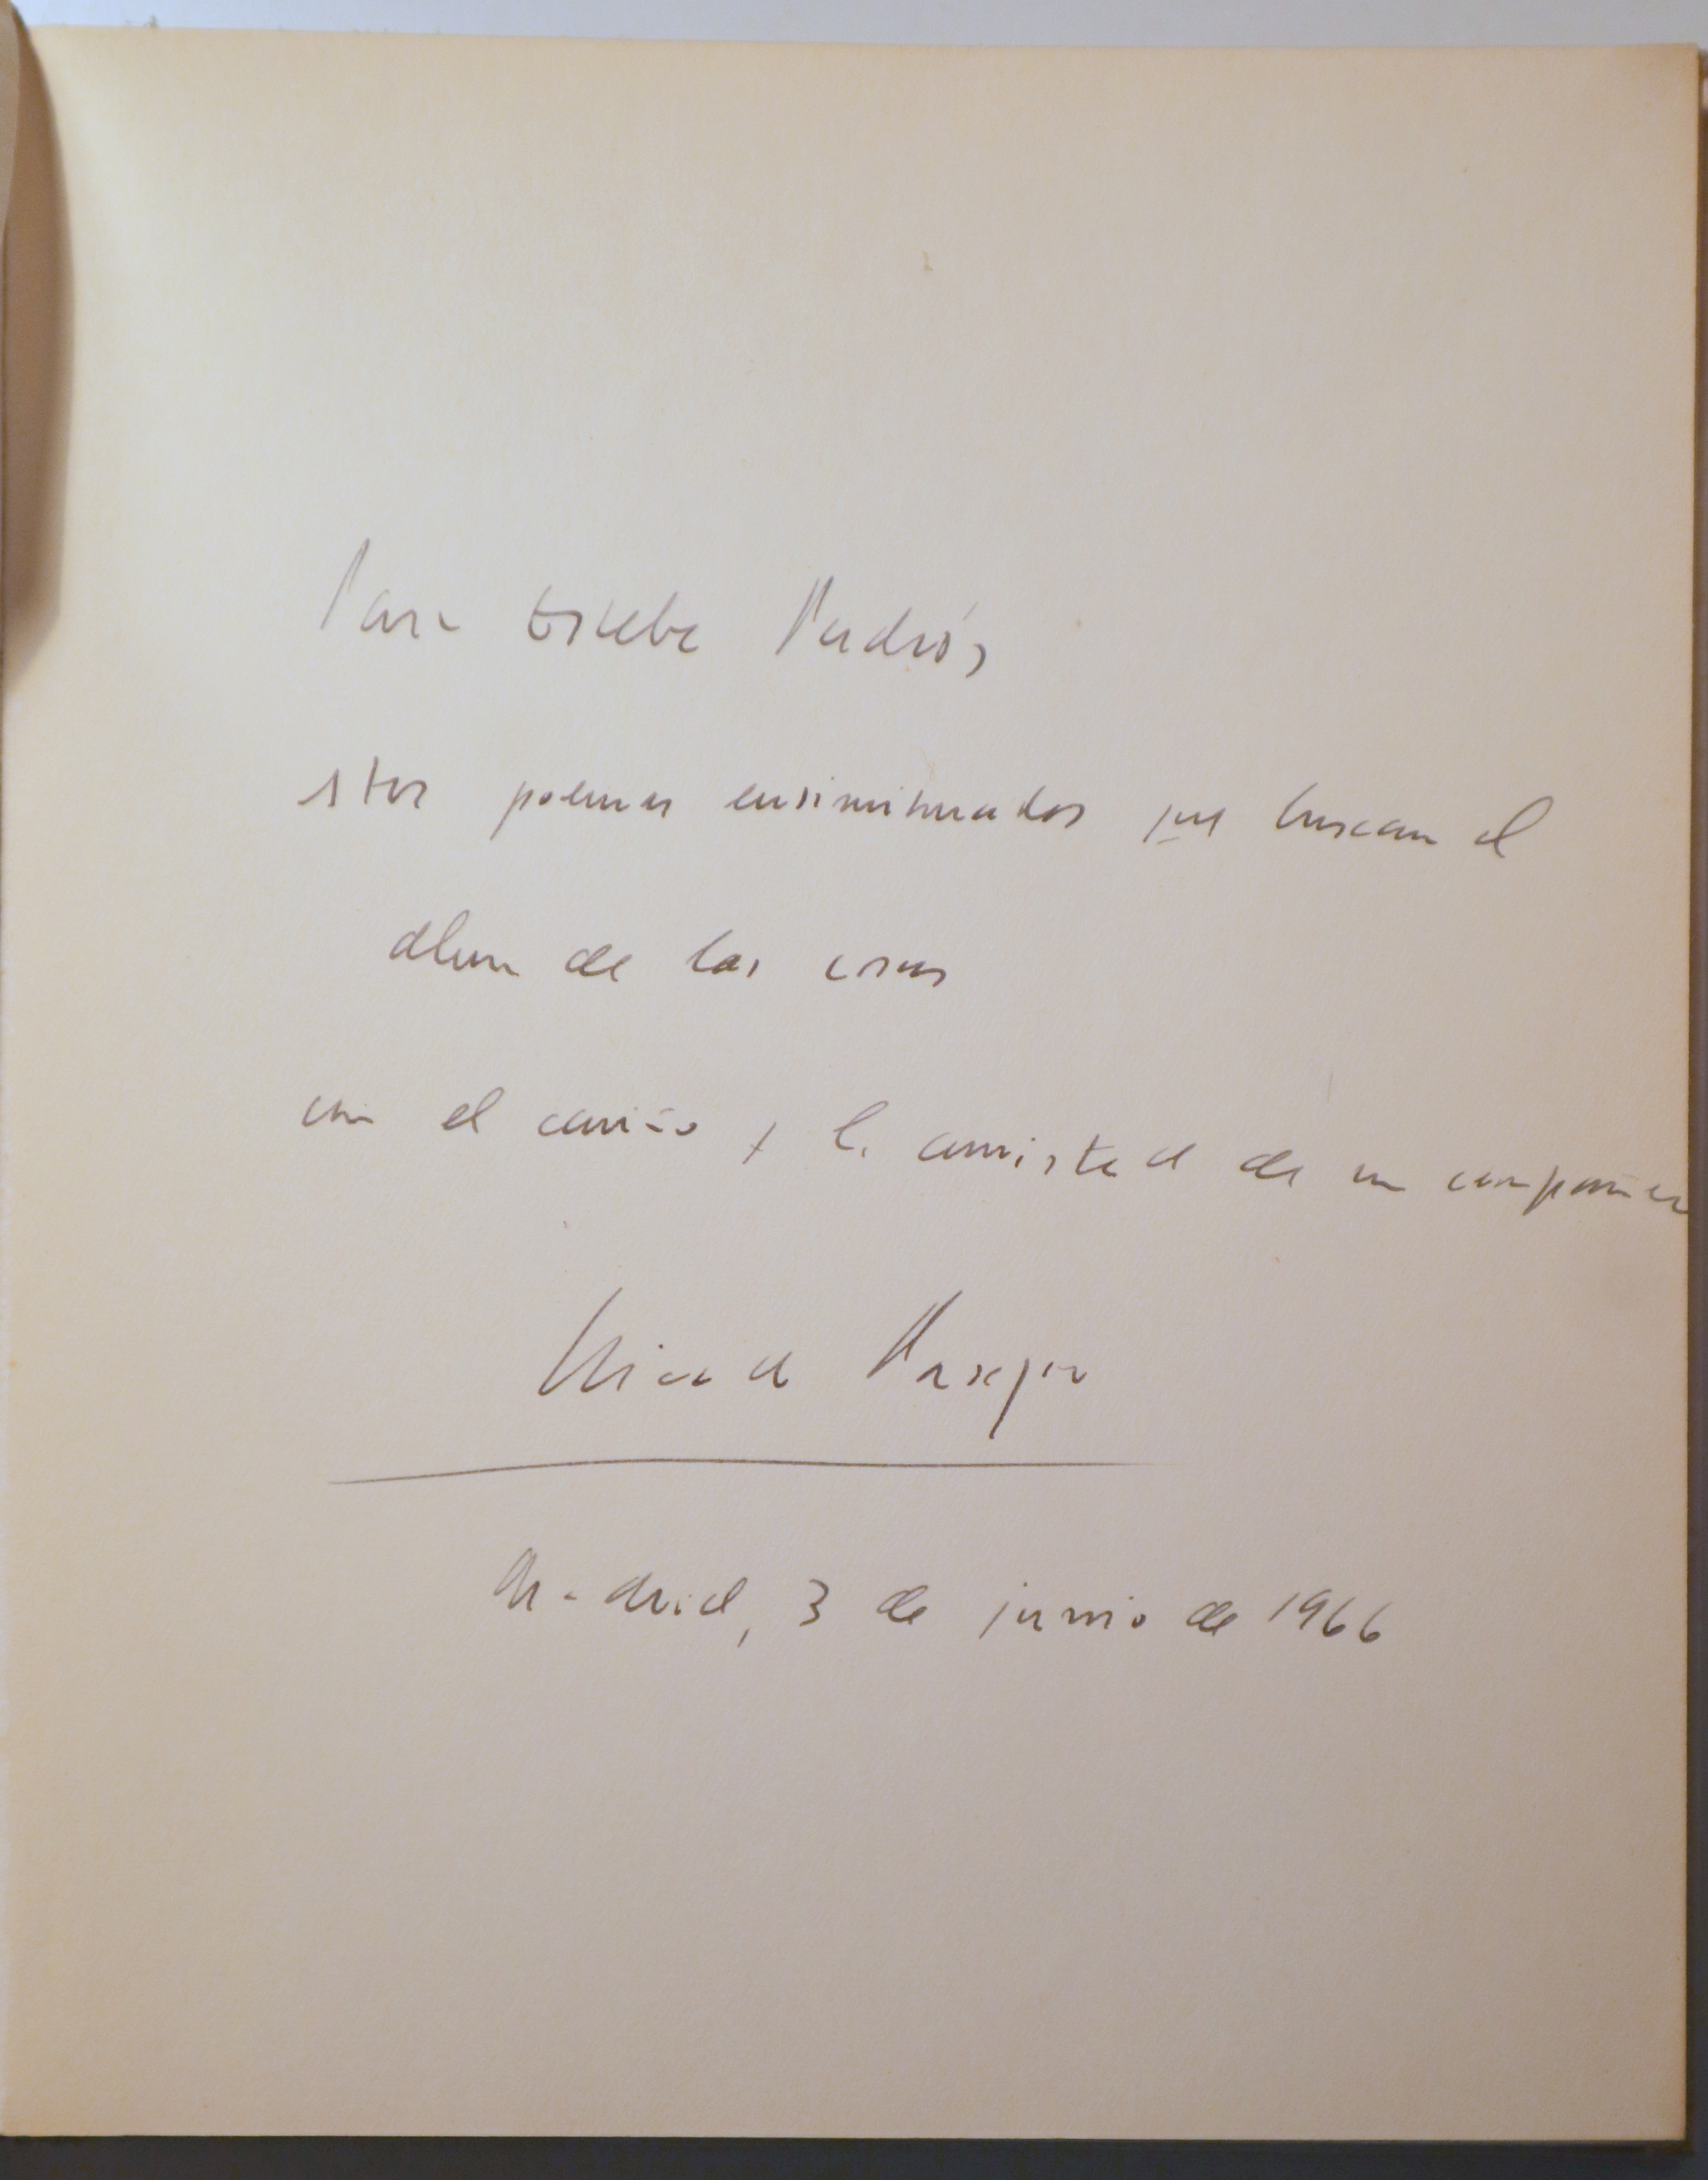 Para Esteba Padrós,
estos poemas ensimismados que buscan el
alma de las cosas
con el cariño y la amistad de un compañero
Madrid, 3 de junio de 1966